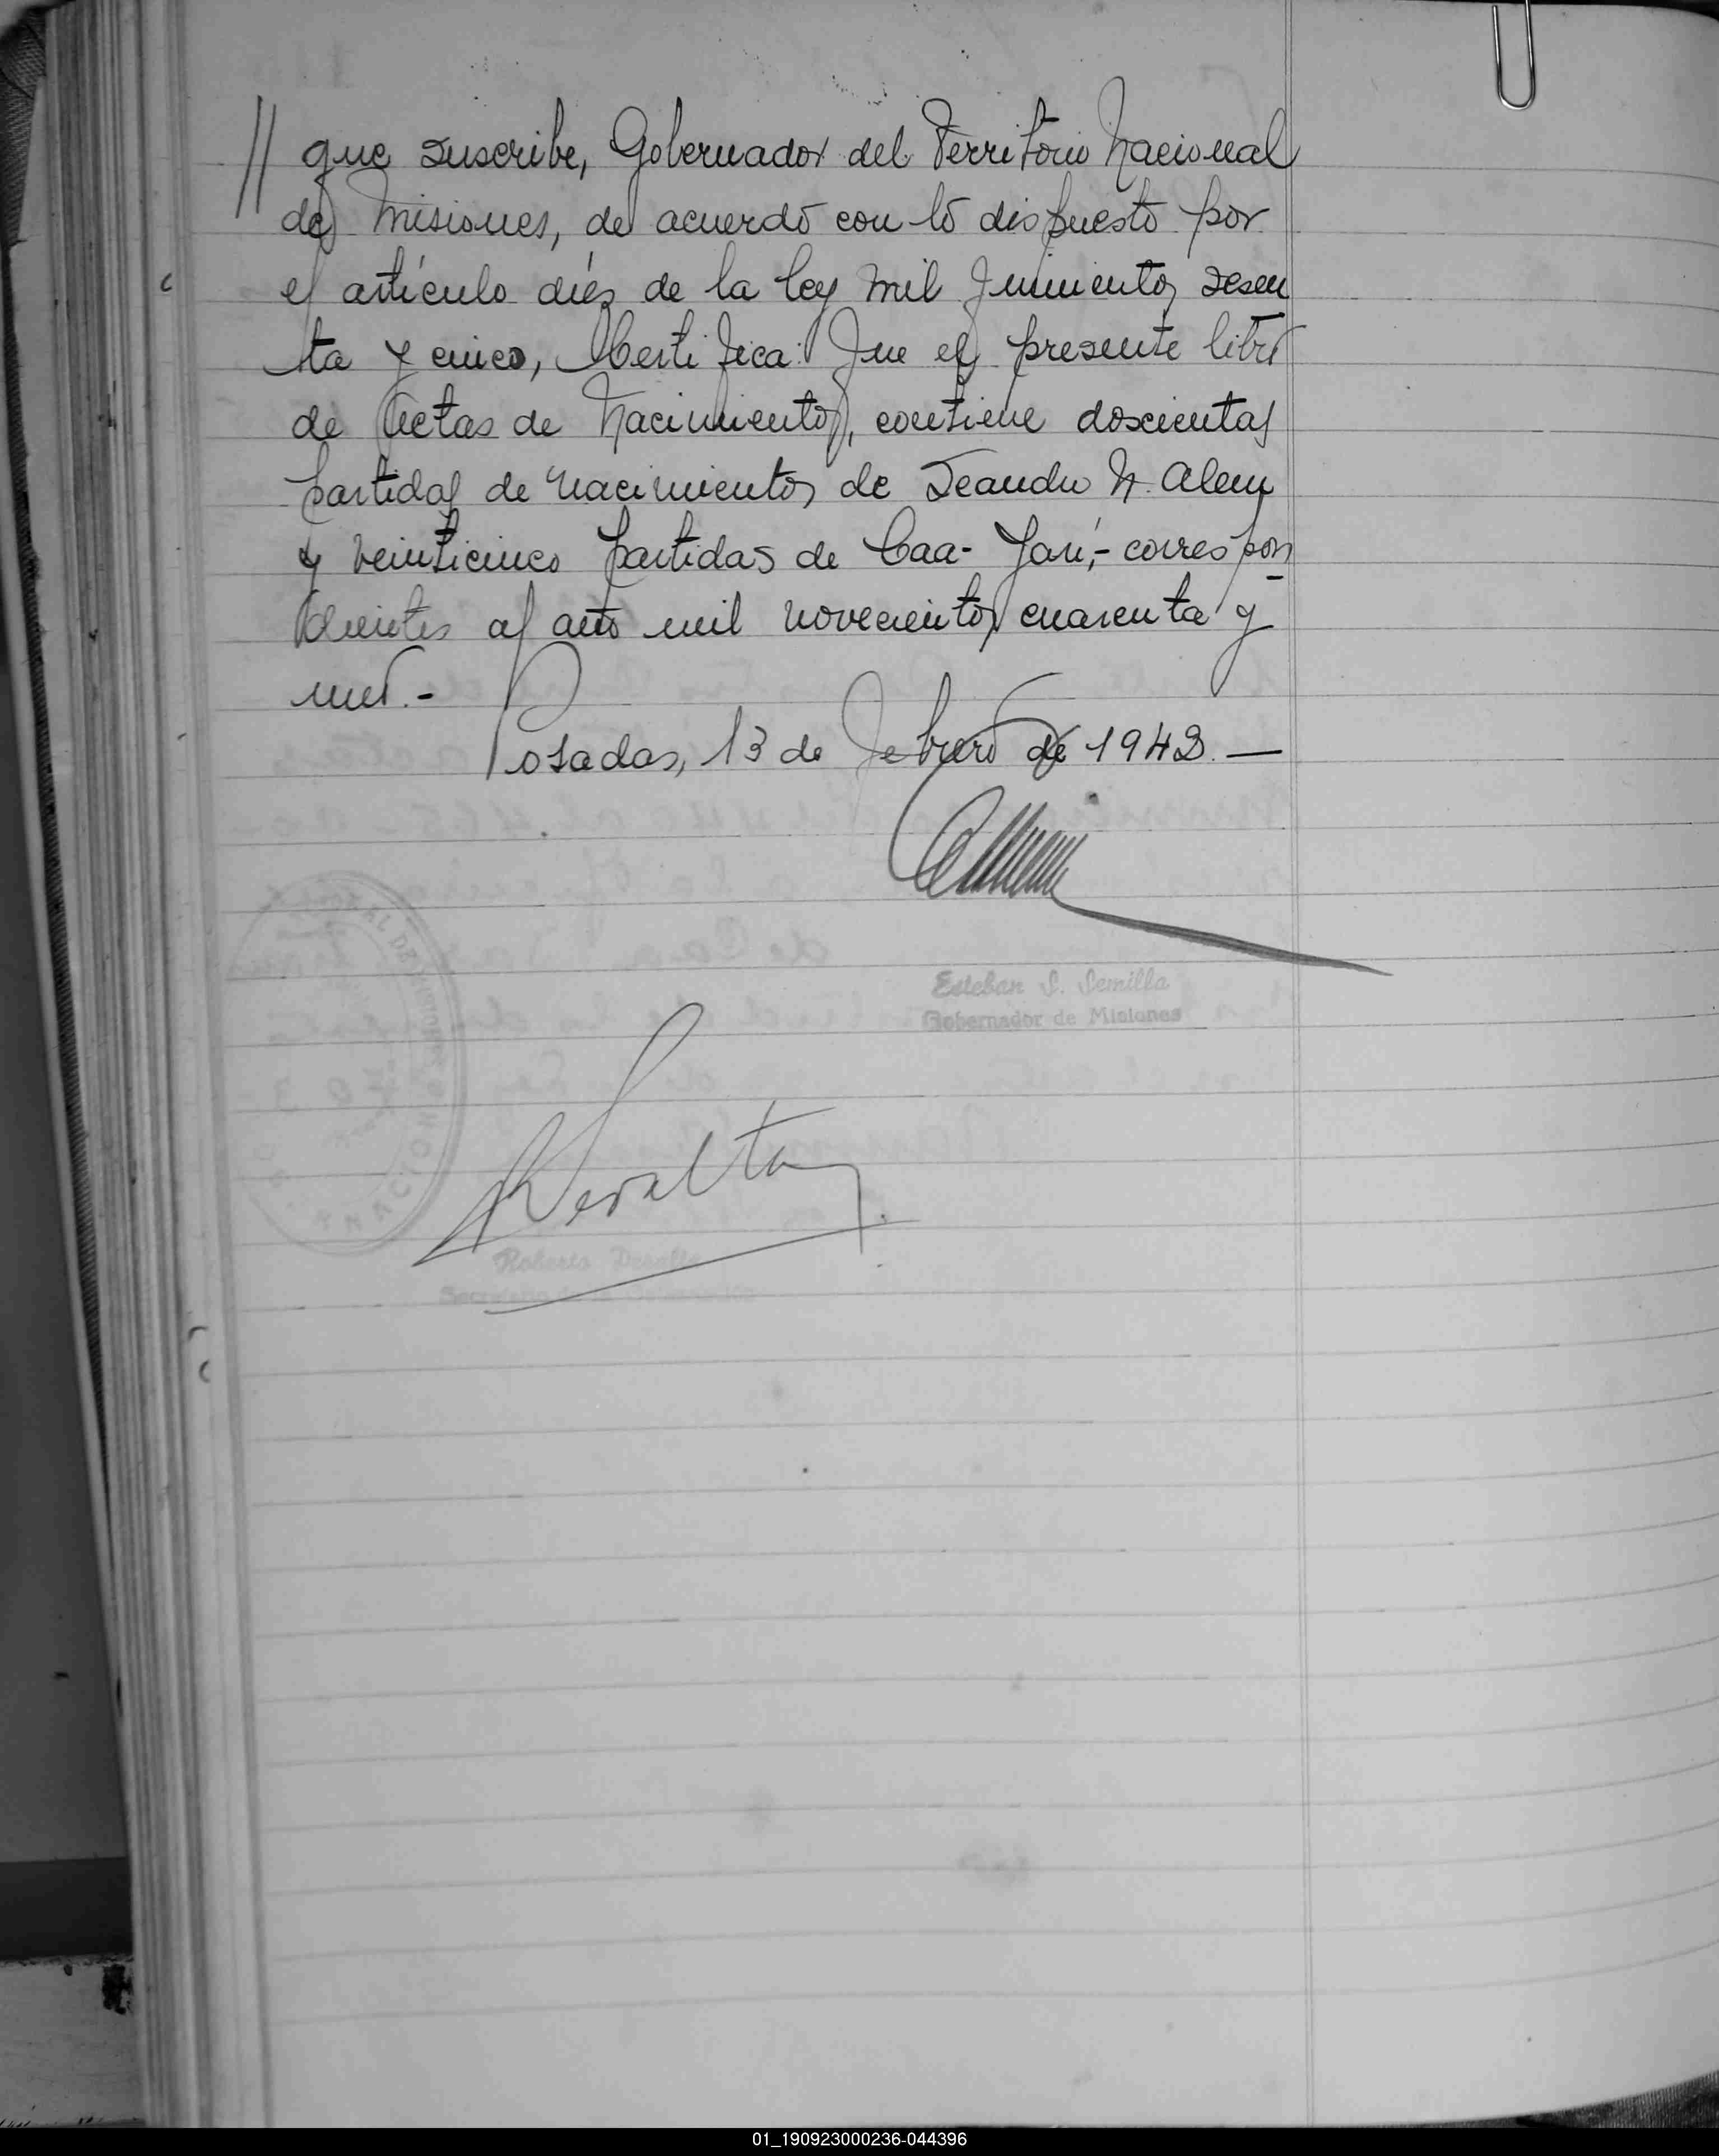 // que suscribe, Gobernador del Territorio Nacional
de Misiones, de acuerdo con lo dispuesto por
el artículo diés de la ley mil quinientos sesen
ta y cinco, Certifica: Que el presente libro
de Actas de Nacimientos, contiene doscientas
partidas de nacimientos de Leandro N. Alem
y veinticinco partidas de Caa-Yarí,- correspon
dientes al año mil novecientos cuarenta y
uno.-
Posadas, 13 de Febrero de 1942.—
Esteban S. Semilla
Gobernador de Misiones
Peralta
Roberto Peralta
Secretario de la Gobernación
01_190923000236-044396